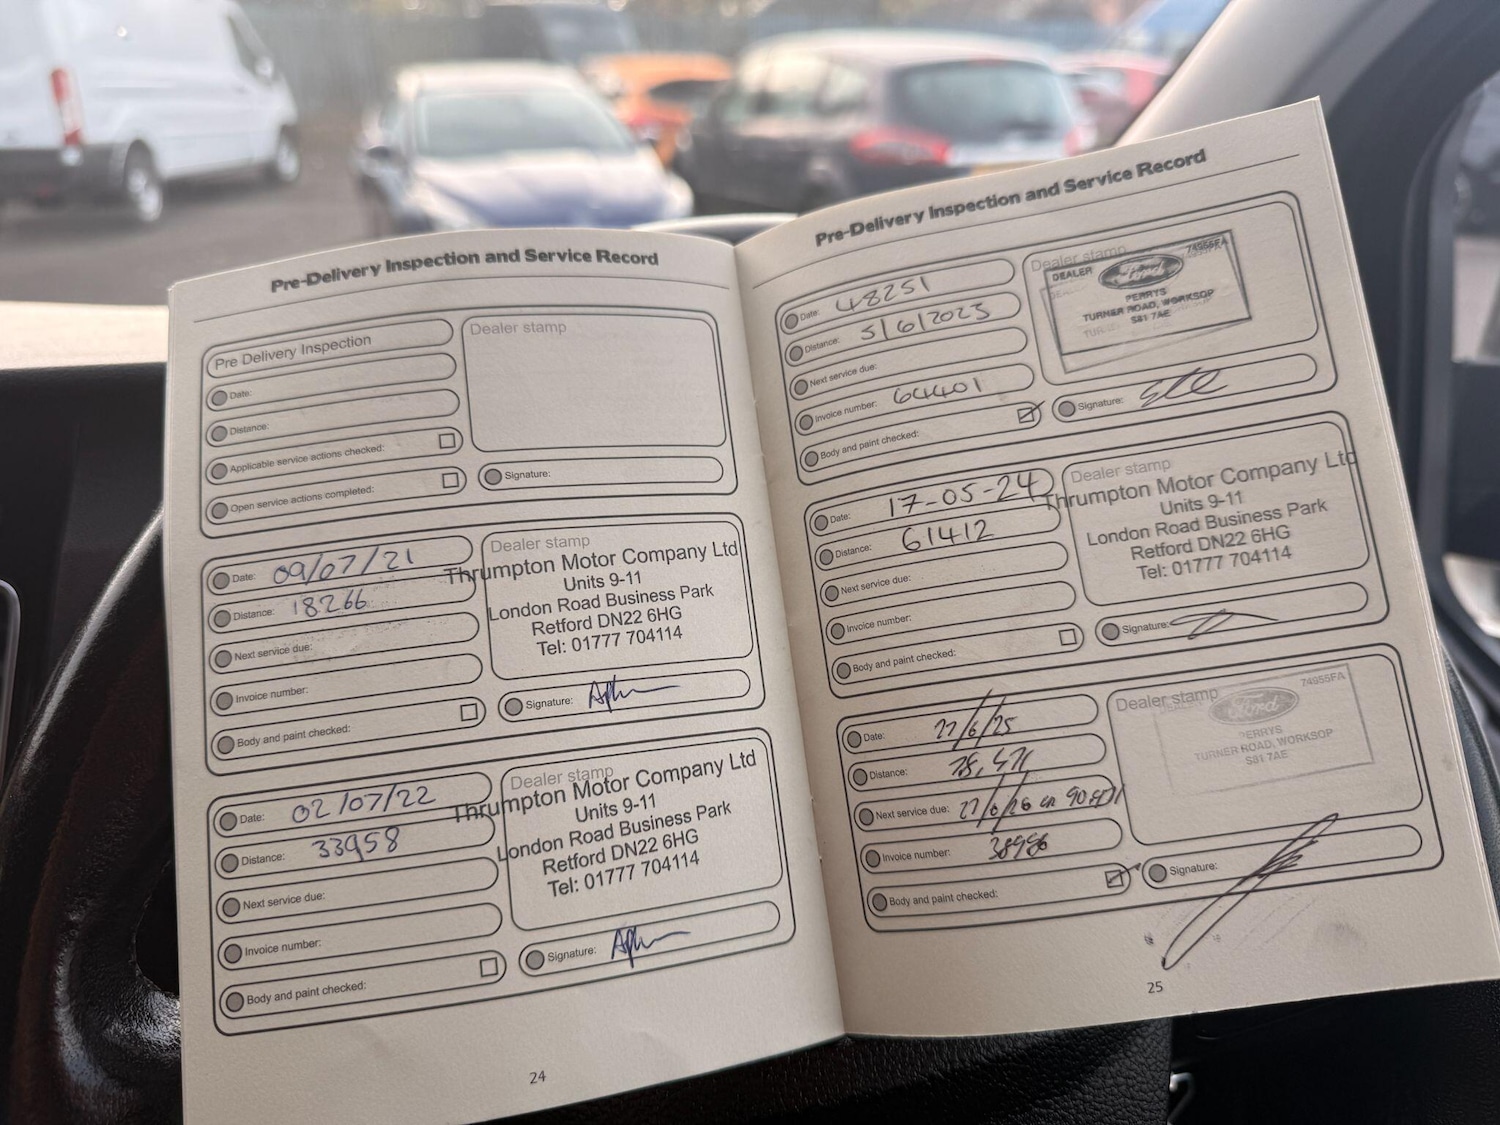 Pre-Delivery Inspection and Service Record
Pre Delivery Inspection
Date:
Distance:
Applicable service actions checked:
Open service actions completed:
Dealer stamp
Signature:
Date: 09/07/21
Distance: 18266
Next service due:
Invoice number:
Body and paint checked:
Dealer stamp
Thrumpton Motor Company Ltd
Units 9-11
London Road Business Park
Retford DN22 6HG
Tel: 01777 704114
Signature:
Date: 02/07/22
Distance: 33958
Next service due:
Invoice number:
Body and paint checked:
Dealer stamp
Thrumpton Motor Company Ltd
Units 9-11
London Road Business Park
Retford DN22 6HG
Tel: 01777 704114
Signature:
24
Pre-Delivery Inspection and Service Record
Date: 48251
Distance: 5/6/2023
Next service due:
Invoice number: 64401
Body and paint checked:
Dealer stamp
74955FA
DEALER Ford
PERRYS
TURNER ROAD, WORKSOP
S81 7AE
Signature:
Date: 17-05-24
Distance: 61412
Next service due:
Invoice number:
Body and paint checked:
Dealer stamp
Thrumpton Motor Company Ltd
Units 9-11
London Road Business Park
Retford DN22 6HG
Tel: 01777 704114
Signature:
Date:
Distance:
Next service due:
Invoice number:
Body and paint checked:
Dealer stamp
74955FA
Ford
PERRYS
TURNER ROAD, WORKSOP
S81 7AE
Signature:
25